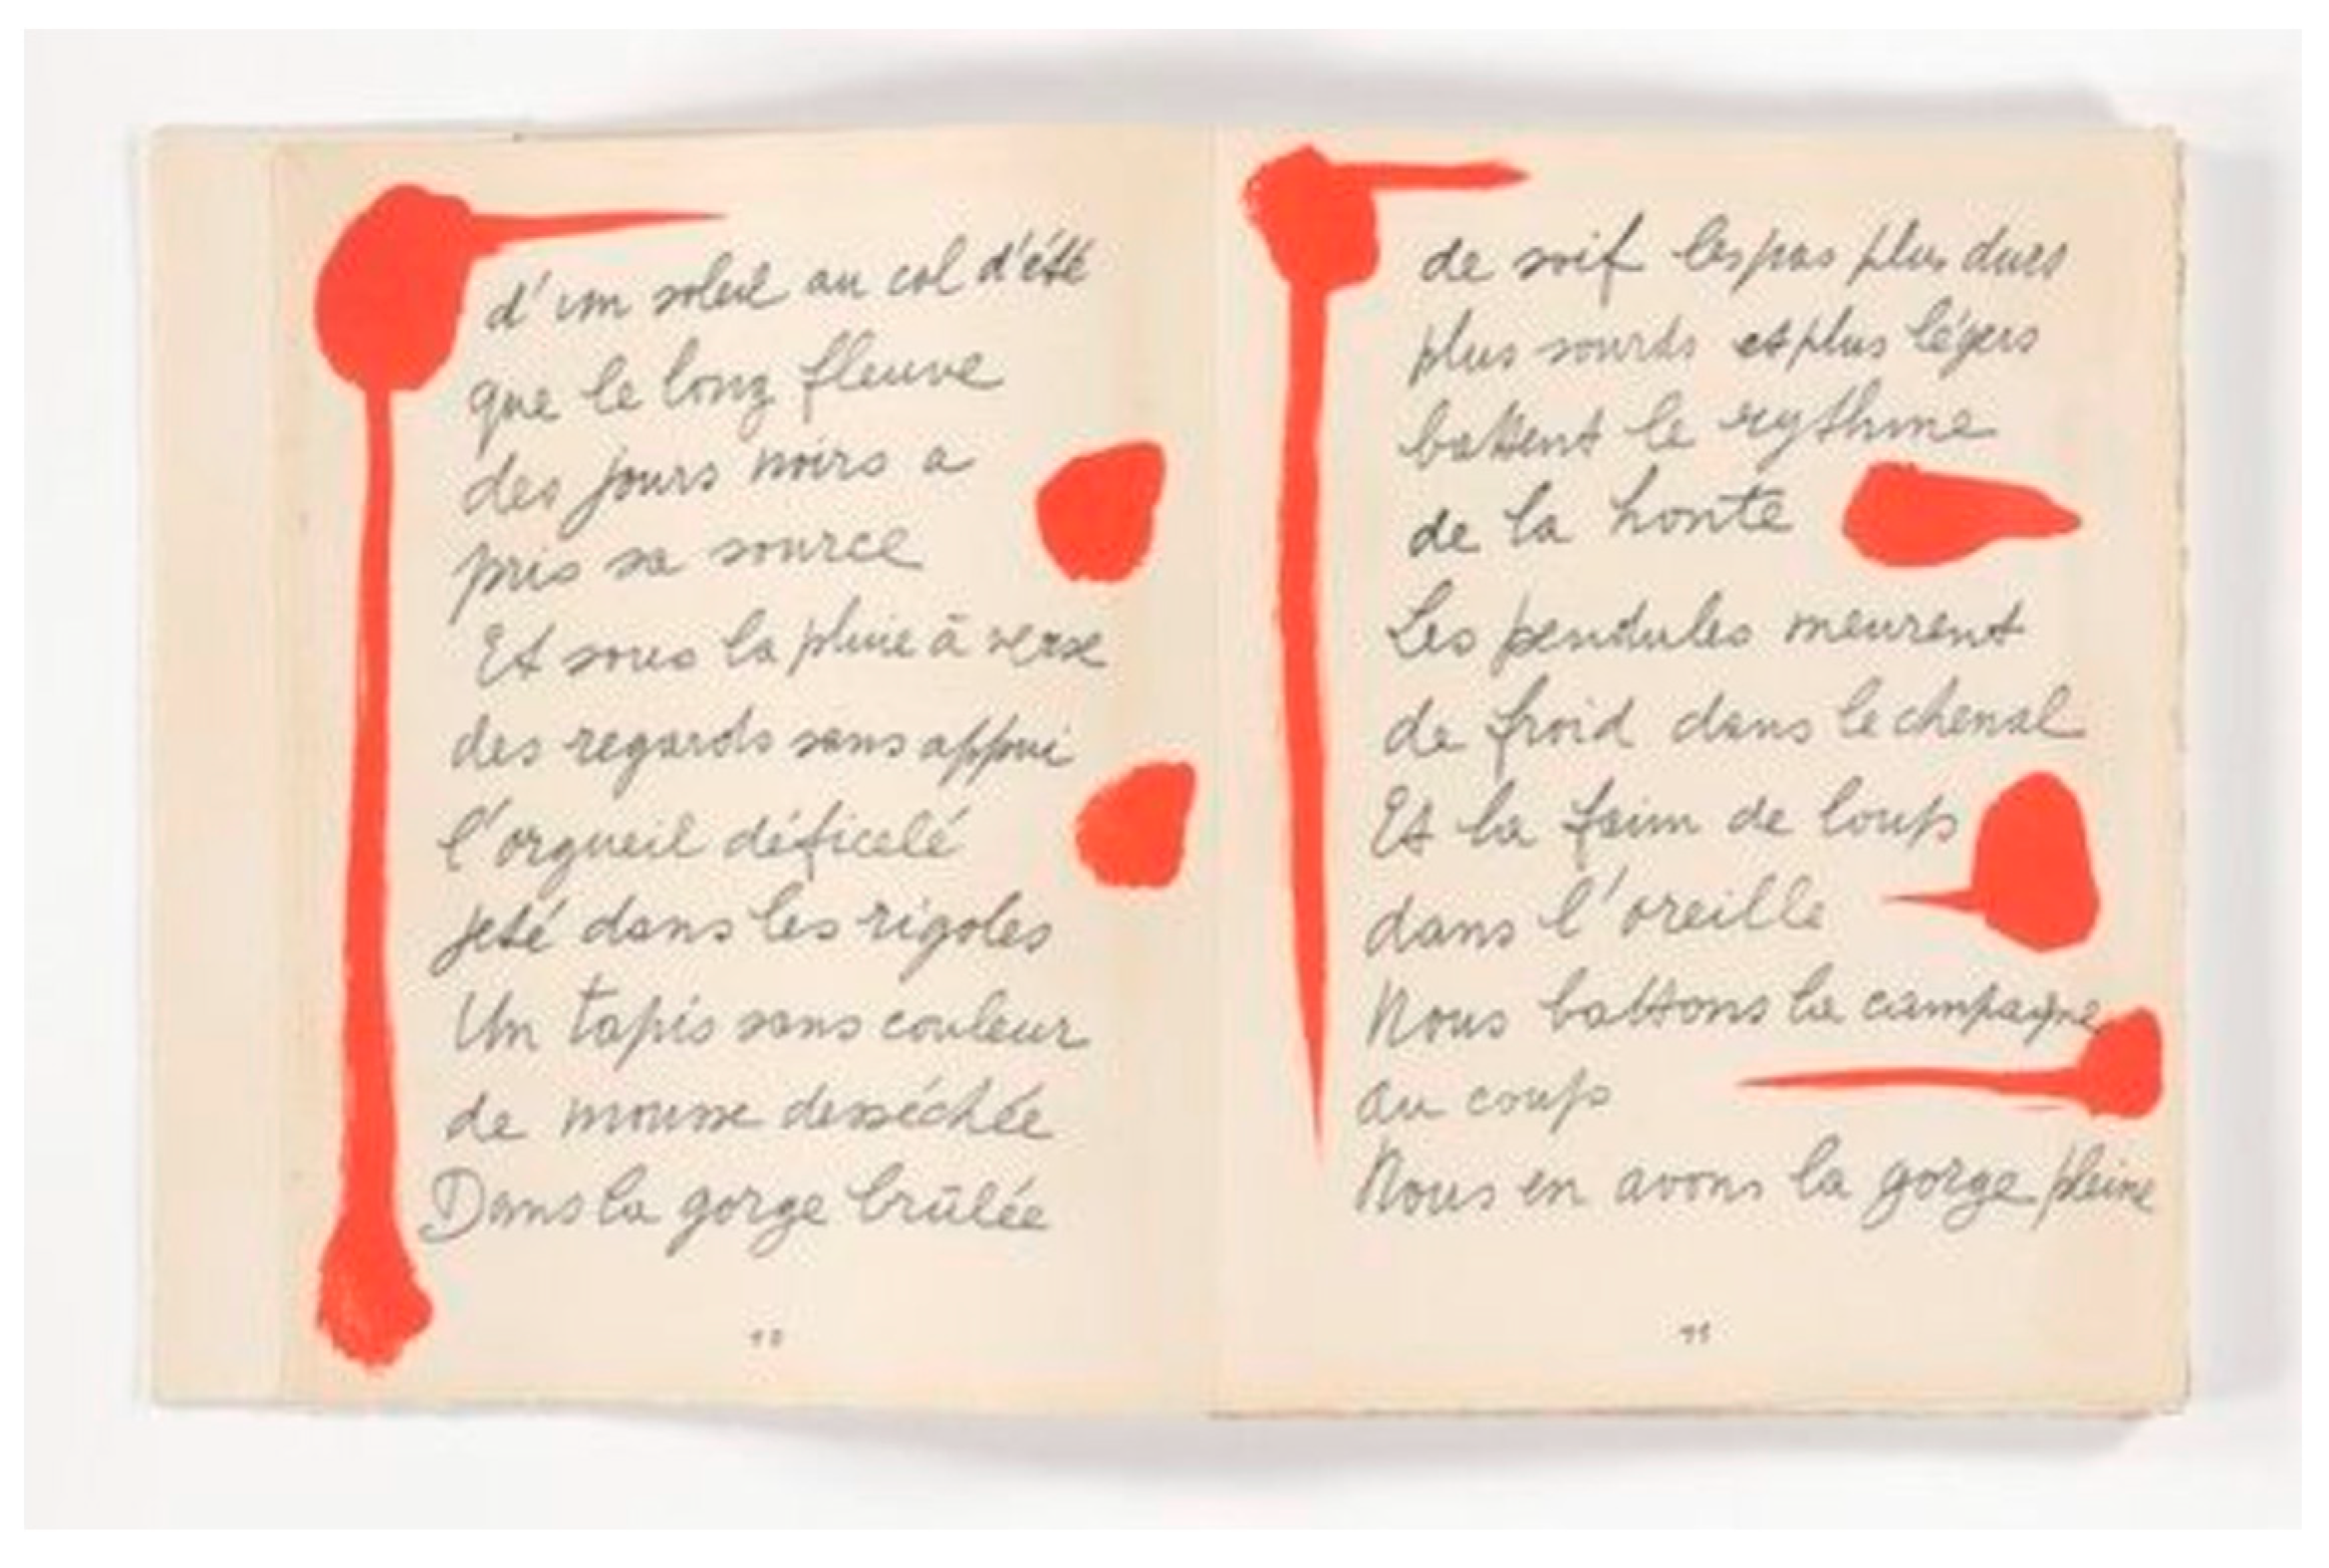 d'un soleil au col d'été
que le long fleuve
des jours noirs a
pris sa source
Et sous la pluie à verse
des regards sans appui
l'orgueil déficelé
jeté dans les rigoles
Un tapis sans couleur
de mousse desséchée
Dans la gorge brûlée
10
de soif les pas plus durs
plus sourds et plus légers
battent le rythme
de la honte
Les pendules meurent
de froid dans le chenal
Et la faim de loup
dans l'oreille
Nous battons la campagne
au coup
Nous en avons la gorge pleine
11